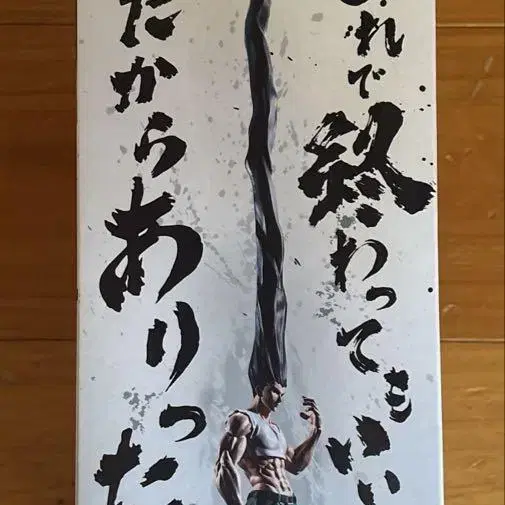 れで終わってもいい
だからありった